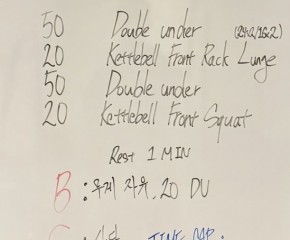 50 Double under (24x2/16x2)
20 Kettlebell Front Rack Lunge
50 Double under
20 Kettlebell Front Squat
Rest 1 MIN
B : 무게 자유. 20 DU